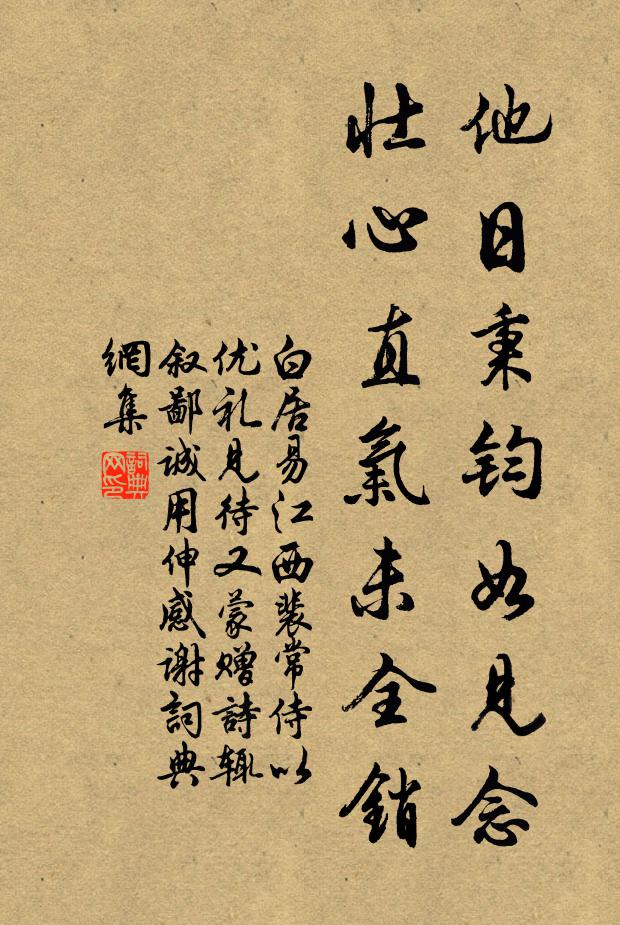 他日秉鈞如見念
壯心直氣未全銷
白居易江西裴常侍以
优礼見待又蒙赠詩辄
叙鄙诚用伸感谢詞典
網集
詞典
网印